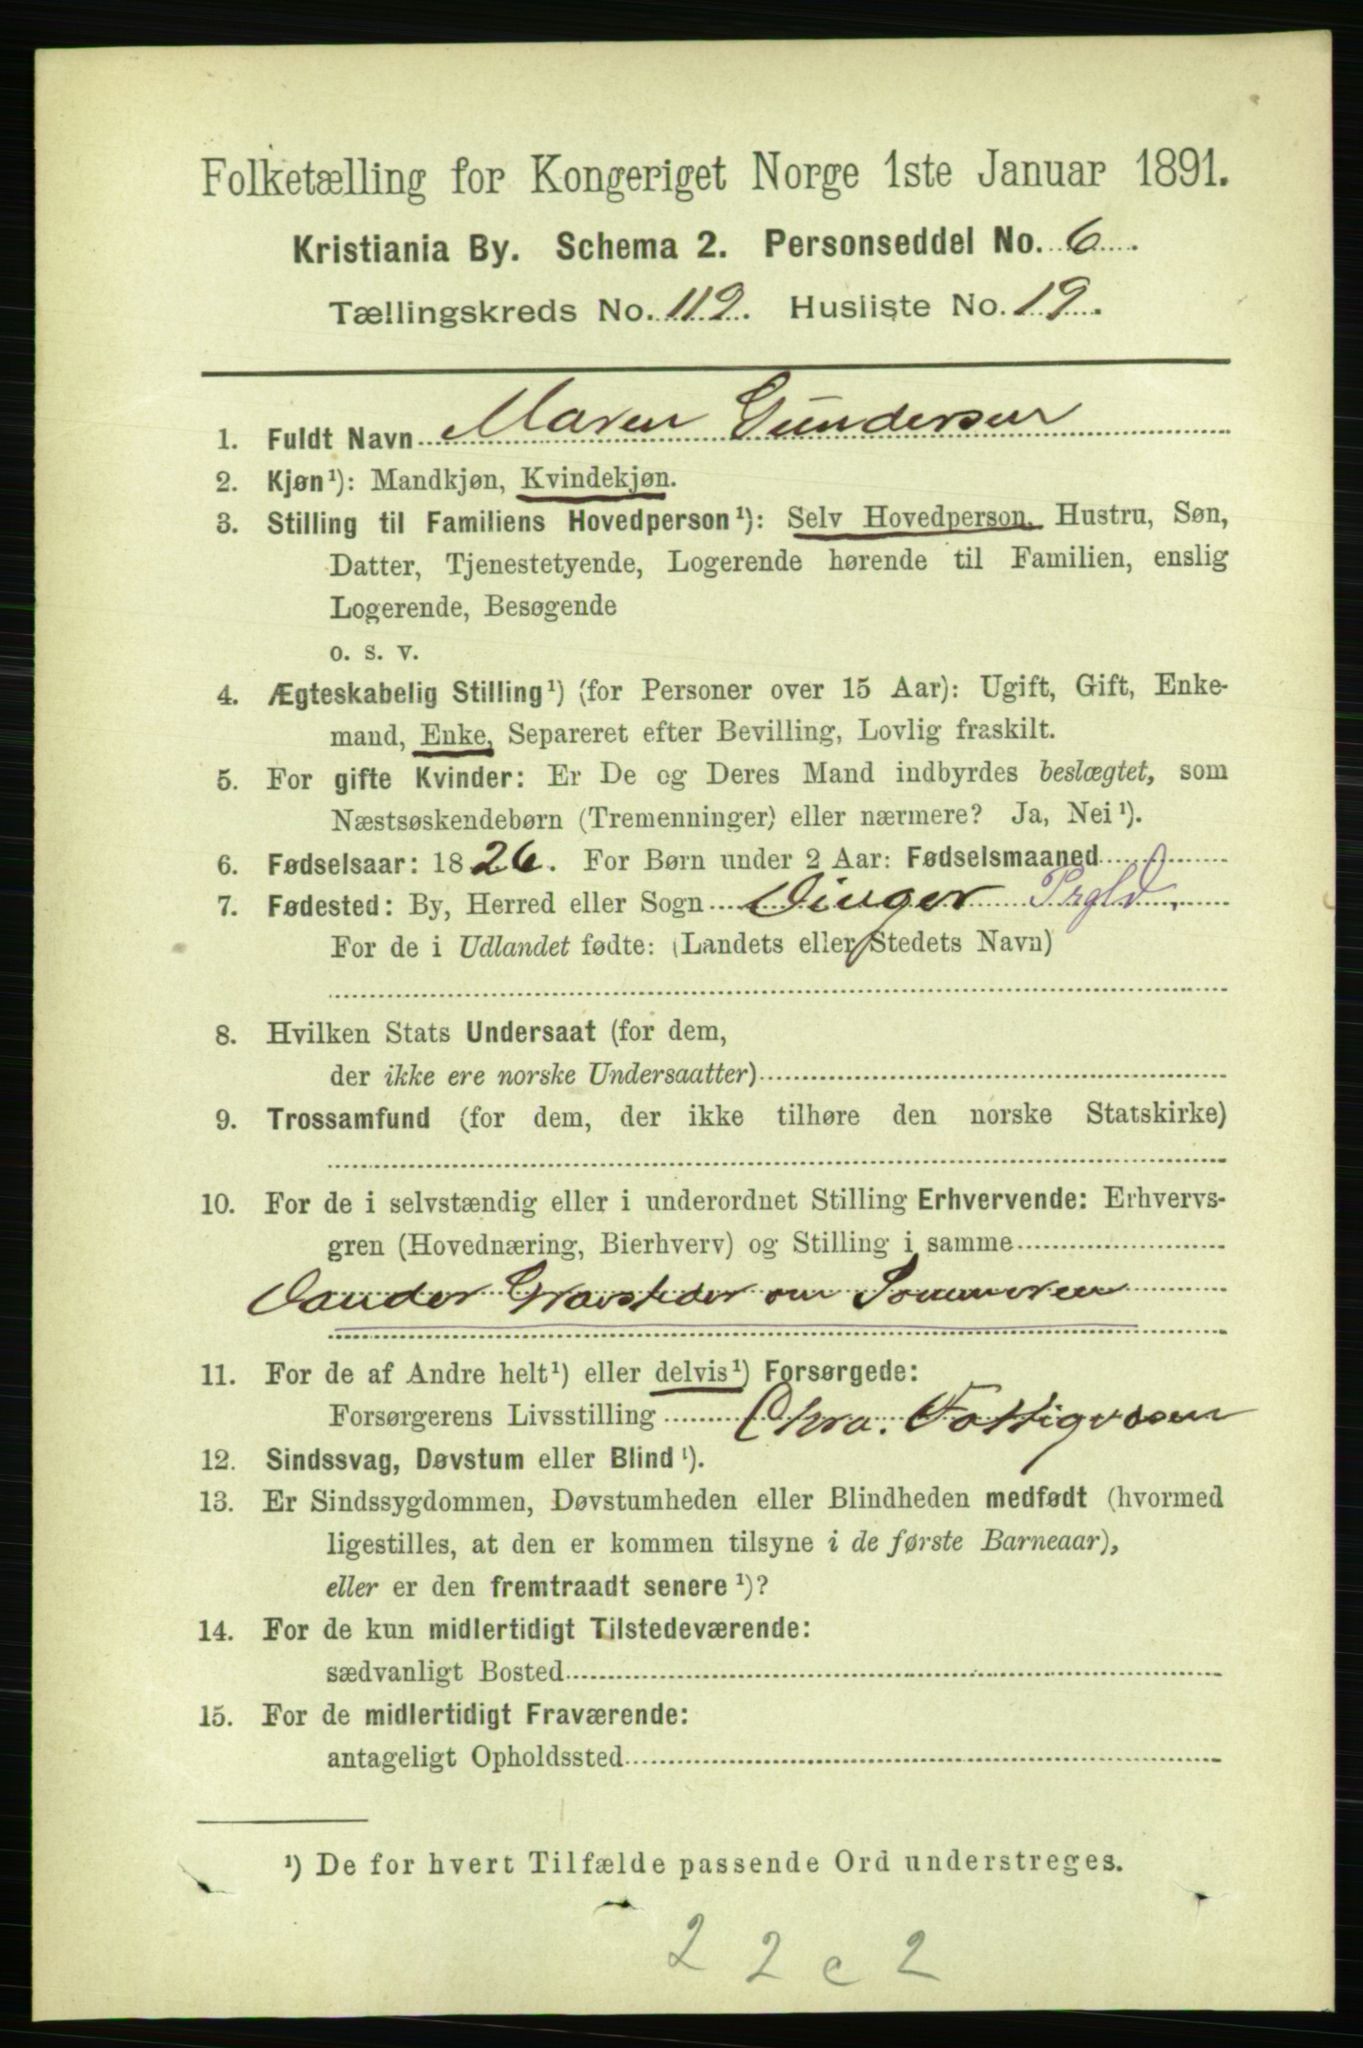 Folketælling for Kongeriget Norge 1ste Januar 1891.
Kristiania By. Schema 2. Personseddel No. 6.
Tællingskreds No. 119. Husliste No. 19.
1. Fuldt Navn Maren Gundersen
2. Kjøn¹): Mandkjøn, Kvindekjøn.
3. Stilling til Familiens Hovedperson¹): Selv Hovedperson, Hustru, Søn,
Datter, Tjenestetyende, Logerende hørende til Familien, enslig
Logerende, Besøgende
o. s. v.
4. Ægteskabelig Stilling¹) (for Personer over 15 Aar): Ugift, Gift, Enke-
mand, Enke, Separeret efter Bevilling, Lovlig fraskilt.
5. For gifte Kvinder: Er De og Deres Mand indbyrdes beslægtet, som
Næstsøskendebørn (Tremenninger) eller nærmere? Ja, Nei¹).
6. Fødselsaar: 1826. For Børn under 2 Aar: Fødselsmaaned
7. Fødested: By, Herred eller Sogn Vinger Prgld.
For de i Udlandet fødte: (Landets eller Stedets Navn)
8. Hvilken Stats Undersaat (for dem,
der ikke ere norske Undersaatter)
9. Trossamfund (for dem, der ikke tilhøre den norske Statskirke)
10. For de i selvstændig eller i underordnet Stilling Erhvervende: Erhvervs-
gren (Hovednæring, Bierhverv) og Stilling i samme
Vander Gravsteder om Sommeren
11. For de af Andre helt¹) eller delvis¹) Forsørgede:
Forsørgerens Livsstilling Chra. Fattigvæsen
12. Sindssvag, Døvstum eller Blind¹).
13. Er Sindssygdommen, Døvstumheden eller Blindheden medfødt (hvormed
ligestilles, at den er kommen tilsyne i de første Barneaar),
eller er den fremtraadt senere¹)?
14. For de kun midlertidigt Tilstedeværende:
sædvanligt Bosted
15. For de midlertidigt Fraværende:
antageligt Opholdssted
¹) De for hvert Tilfælde passende Ord understreges.
2 2 c 2